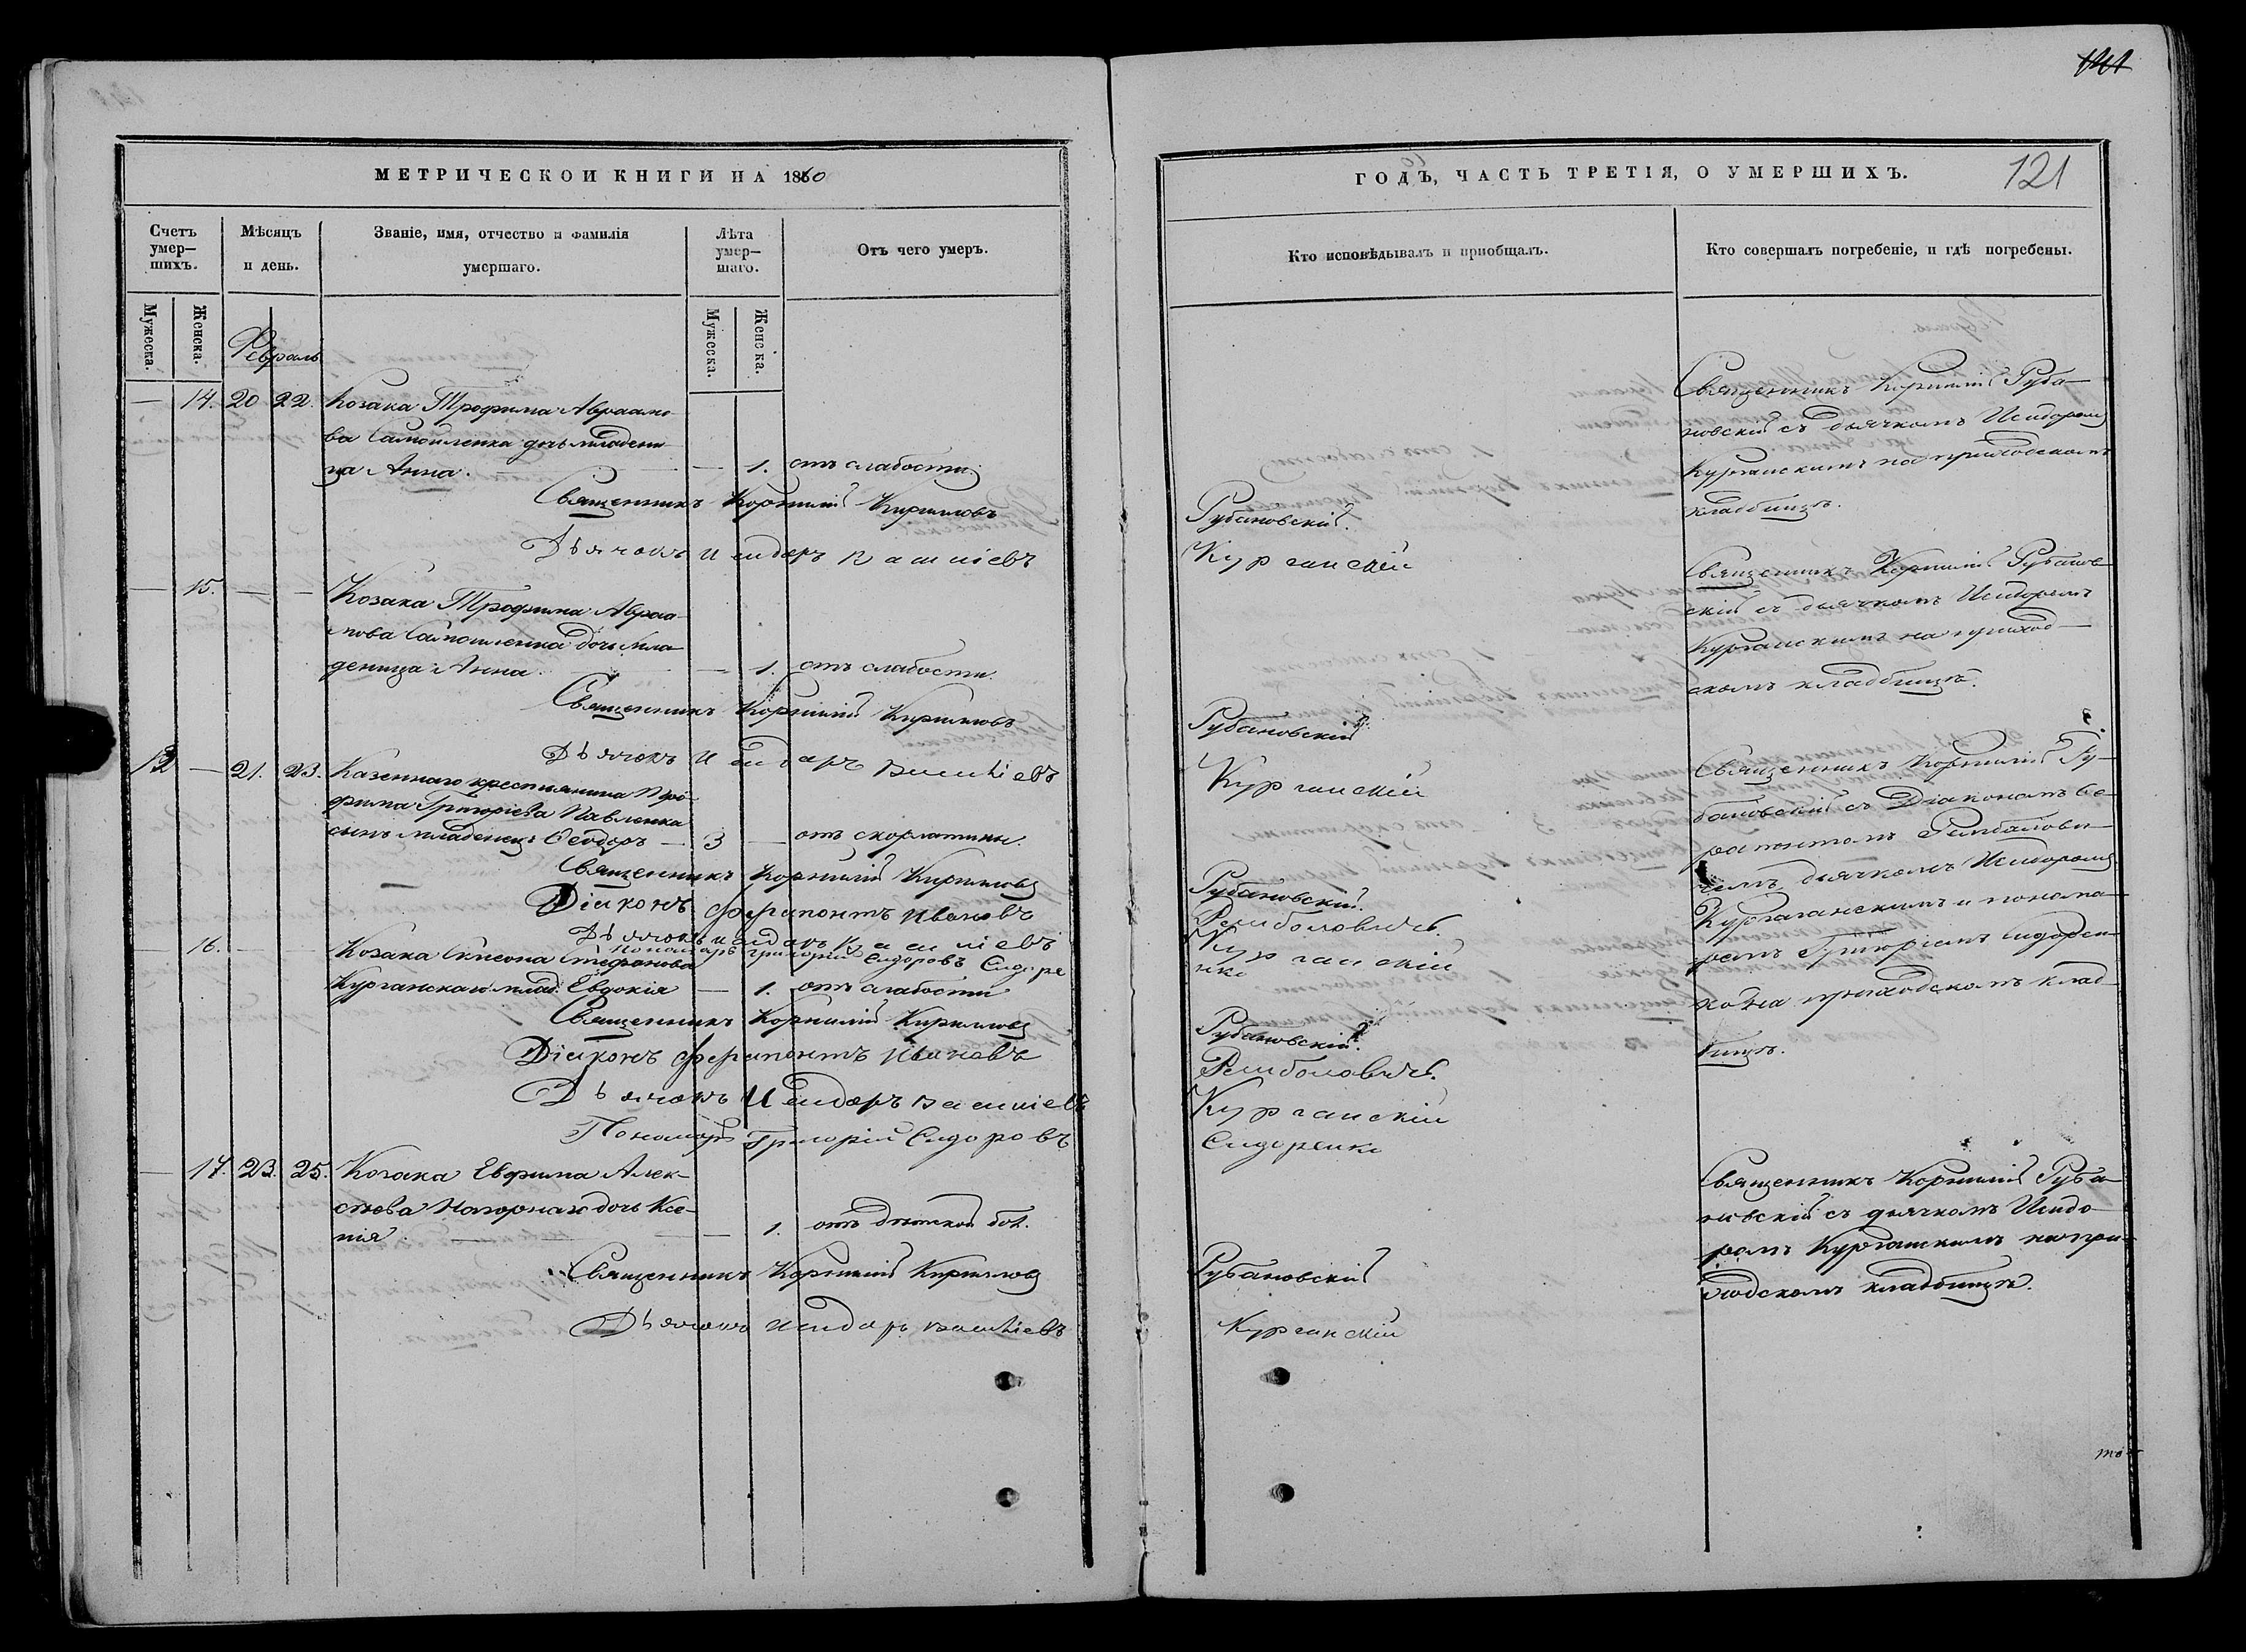 141
МЕТРИЧЕСКОЙ КНИГИ НА 1860
ГОДЪ, ЧАСТЬ ТРЕТІЯ, О УМЕРШИХЪ.
121
Счетъ умер-шихъ.
Мѣсяцъ и день.
Званіе, имя, отчество и фамилія умершаго.
Лѣта умер-шаго.
Отъ чего умеръ.
Кто исповѣдывалъ и пріобщалъ.
Кто совершалъ погребеніе, и гдѣ погребены.
Мужеска.
Женска.
Мужеска.
Женска.
Февраль
— 14. 20 22. Козака Трофима Авраамо-
ва Самойленка дочь младени
ца Анна. — — 1. отъ слабости
Священникъ Корнилій Кирилловъ Рубановскій.
Дьячокъ Исидоръ Василіевъ Курганскій
Священникъ Корнилій Руба-
новскій съ дьячкомъ Исидоромъ
Курганскимъ на приходскомъ
кладбищѣ.
— 15. — — Козака Трофима Авраа-
мова Самойленка дочь мла-
деница Анна. — 1. отъ слабости.
Священникъ Корнилій Кирилловъ Рубановскій
Дьячокъ Исидоръ Василіевъ Курганскій
Священникъ Корнилій Рубанов-
скій съ дьячкомъ Исидоромъ
Курганскимъ на приход-
скомъ кладбищѣ.
12 — 21. 23. Казеннаго крестьянина Тро-
фима Григоріева Павленка
сынъ младенецъ Феодоръ — 3 — отъ скорлатины.
Священникъ Корнилій Кирилловъ Рубановскій.
Діаконъ Ферапонтъ Ивановъ Ремболовичъ.
Дьячокъ Исидоръ Василіевъ Курганскій
Пономарь Григорій Сидоровъ Сидоре
нко
Священникъ Корнилій Ру-
бановскій съ Діакономъ Фе-
рапонтомъ Рембалови-
чемъ, дьячкомъ Исидоромъ
Курганскимъ и понома-
ремъ Григоріемъ Сидорен-
комъ на приходскомъ клад-
бищѣ.
— 16. — — Козака Симеона Стефанова
Курганскаго млад. Евдокія — 1. отъ слабости
Священникъ Корнилій Кирилловъ Рубановскій.
Діаконъ Ферапонтъ Ивановъ Ремболовичъ.
Дьячокъ Исидоръ Василіевъ Курганскій
Пономарь Григорій Сидоровъ Сидоренко
— 17. 23. 25. Козака Евфима Алек-
сѣева Нагорнаго дочь Ксе-
нія. — — 1. отъ дѣтской бол.
Священникъ Корнилій Кирилловъ Рубановскій
Дьячокъ Исидоръ Василіевъ Курганскій
Священникъ Корнилій Руба-
новскій съ дьячкомъ Исидо-
ромъ Курганскимъ на при-
ходскомъ кладбищѣ.